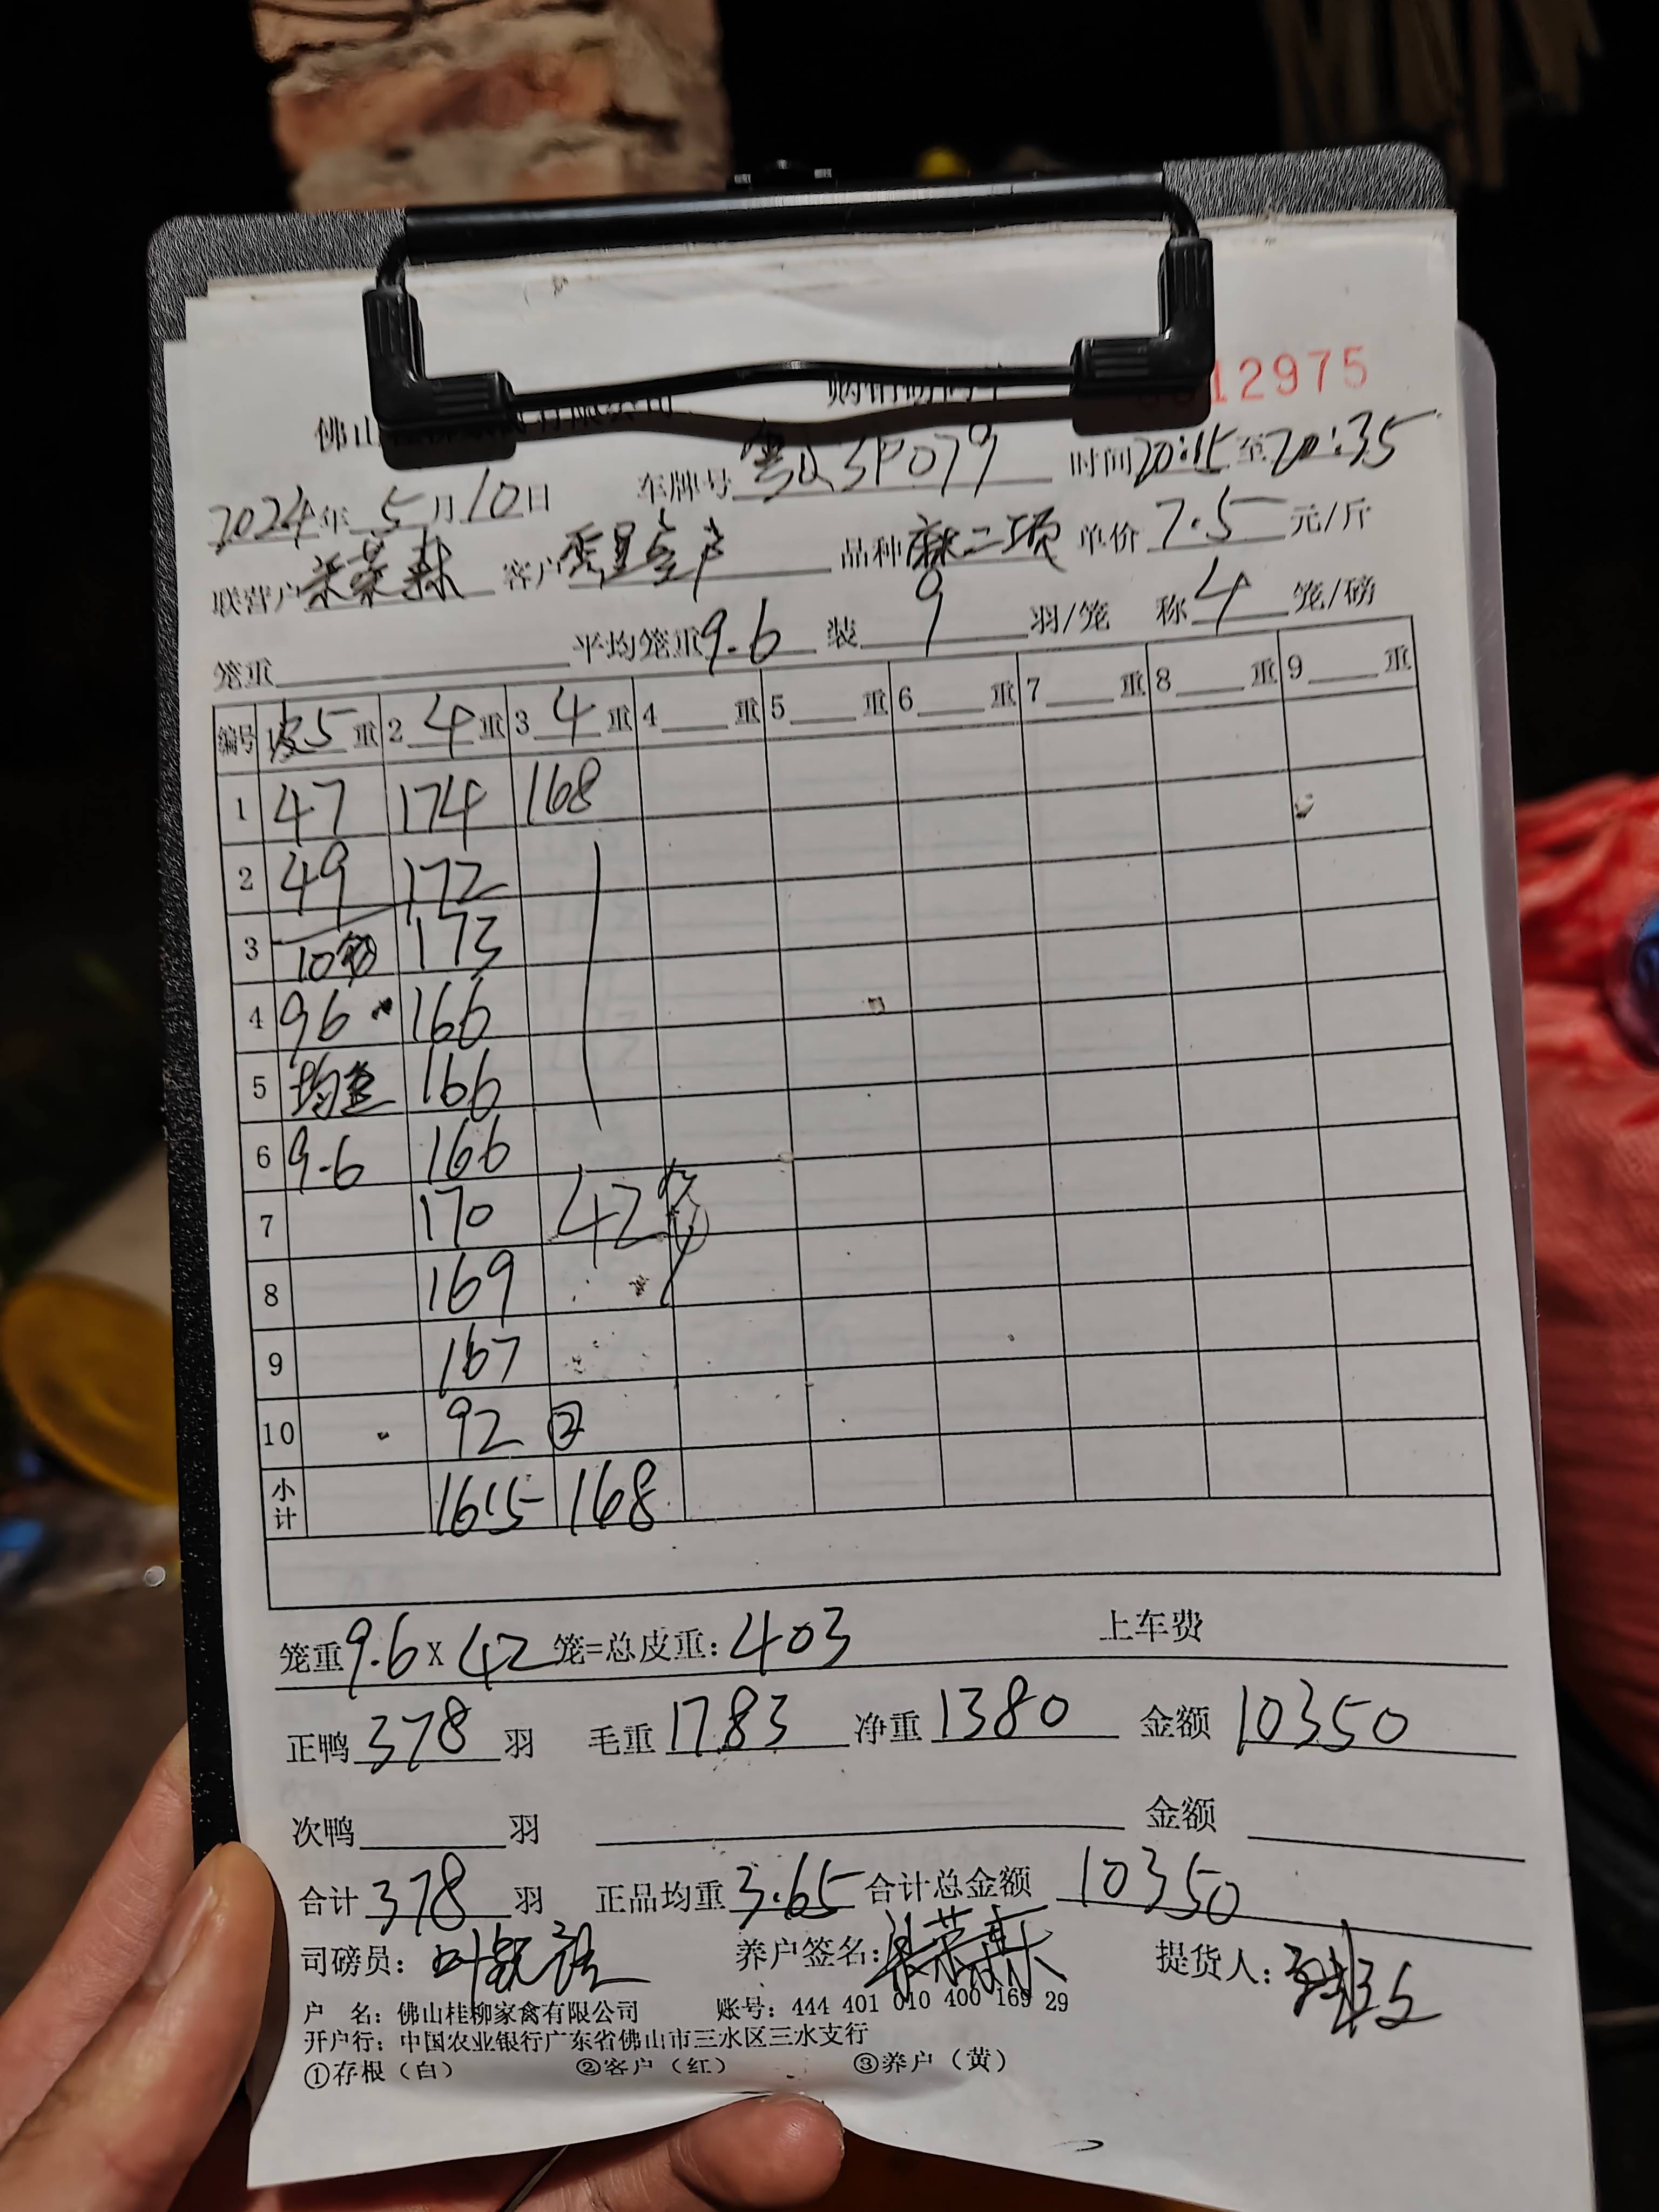 12975
佛山
2024年5月10日 车牌号 粤Q3P079 时间20:15至20:35
联营户 客户 品种麻二项 单价7.5元/斤
笼重 平均笼重9.6 装9羽/笼 称4笼/磅
编号 1皮5重 2 4重 3 4重 4 重 5 重 6 重 7 重 8 重 9 重
1 47 174 168
2 49 172
3 10笼 173
4 96 166
5 均重 166
6 9.6 166
7 170 42笼
8 169
9 167
10 92 ②
小计 1615 168
笼重9.6×42笼=总皮重:403 上车费
正鸭378羽 毛重1783 净重1380 金额10350
次鸭 羽 金额
合计378羽 正品均重3.65 合计总金额10350
司磅员: 养户签名: 提货人:
户 名:佛山桂柳家禽有限公司 账号:444 401 010 400 169 29
开户行:中国农业银行广东省佛山市三水区三水支行
①存根(白) ②客户(红) ③养户(黄)